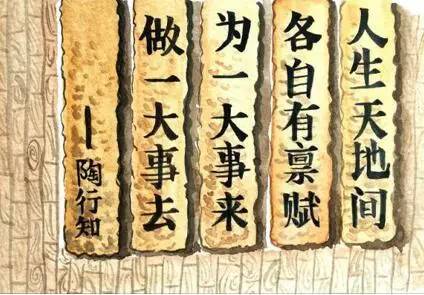 人生天地间
各自有禀赋
为一大事来
做一大事去
—陶行知